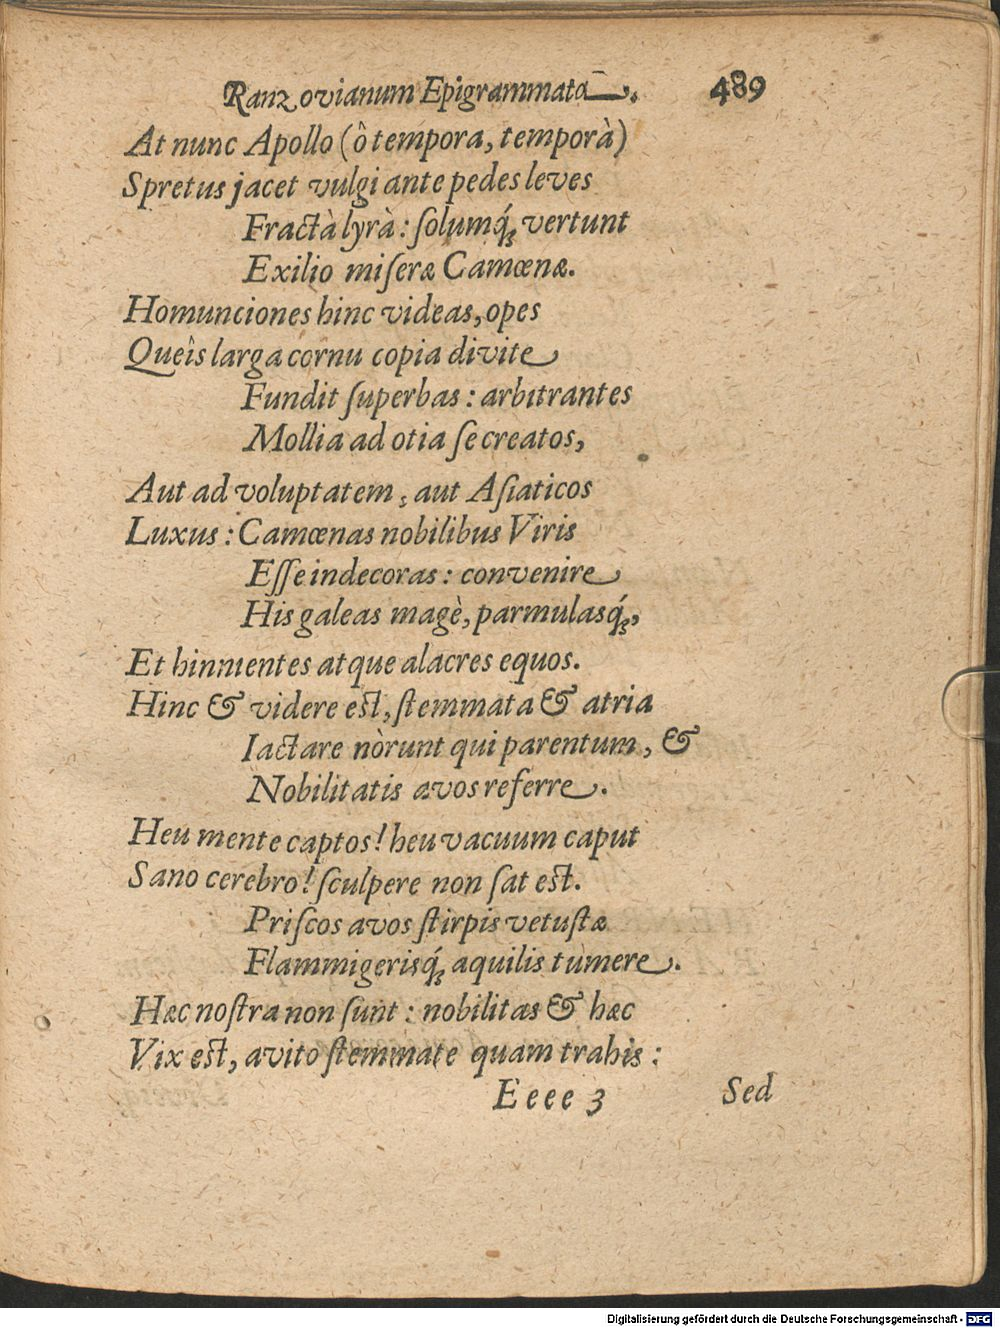 Ranzovianum Epigrammata. 489
At nunc Apollo (ô tempora, temporà)
Spretus jacet vulgi ante pedes leves
Fractà lyrà : ſolumq́ꝫ vertunt
Exilio miſeræ Camœnæ.
Homunciones hinc videas, opes
Queîs larga cornu copia divite
Fundit ſuperbas : arbitrantes
Mollia ad otia ſe creatos,
Aut ad voluptatem, aut Aſiaticos
Luxus : Camœnas nobilibus Viris
Eſſe indecoras : convenire
His galeas magè, parmulasq́ꝫ,
Et hinnientes atque alacres equos.
Hinc & videre est, ſtemmata & atria
Iactare nòrunt qui parentum, &
Nobilitatis avos referre.
Heu mente captos! heu vacuum caput
Sano cerebro! ſculpere non ſat est.
Priſcos avos ſtirpis vetuſtæ
Flammigerisq́ꝫ aquilis tumere.
Hæc noſtra non ſunt : nobilitas & hæc
Vix est, avito ſtemmate quam trahis :
Eeee 3 Sed
Digitalisierung gefördert durch die Deutsche Forschungsgemeinschaft - DFG